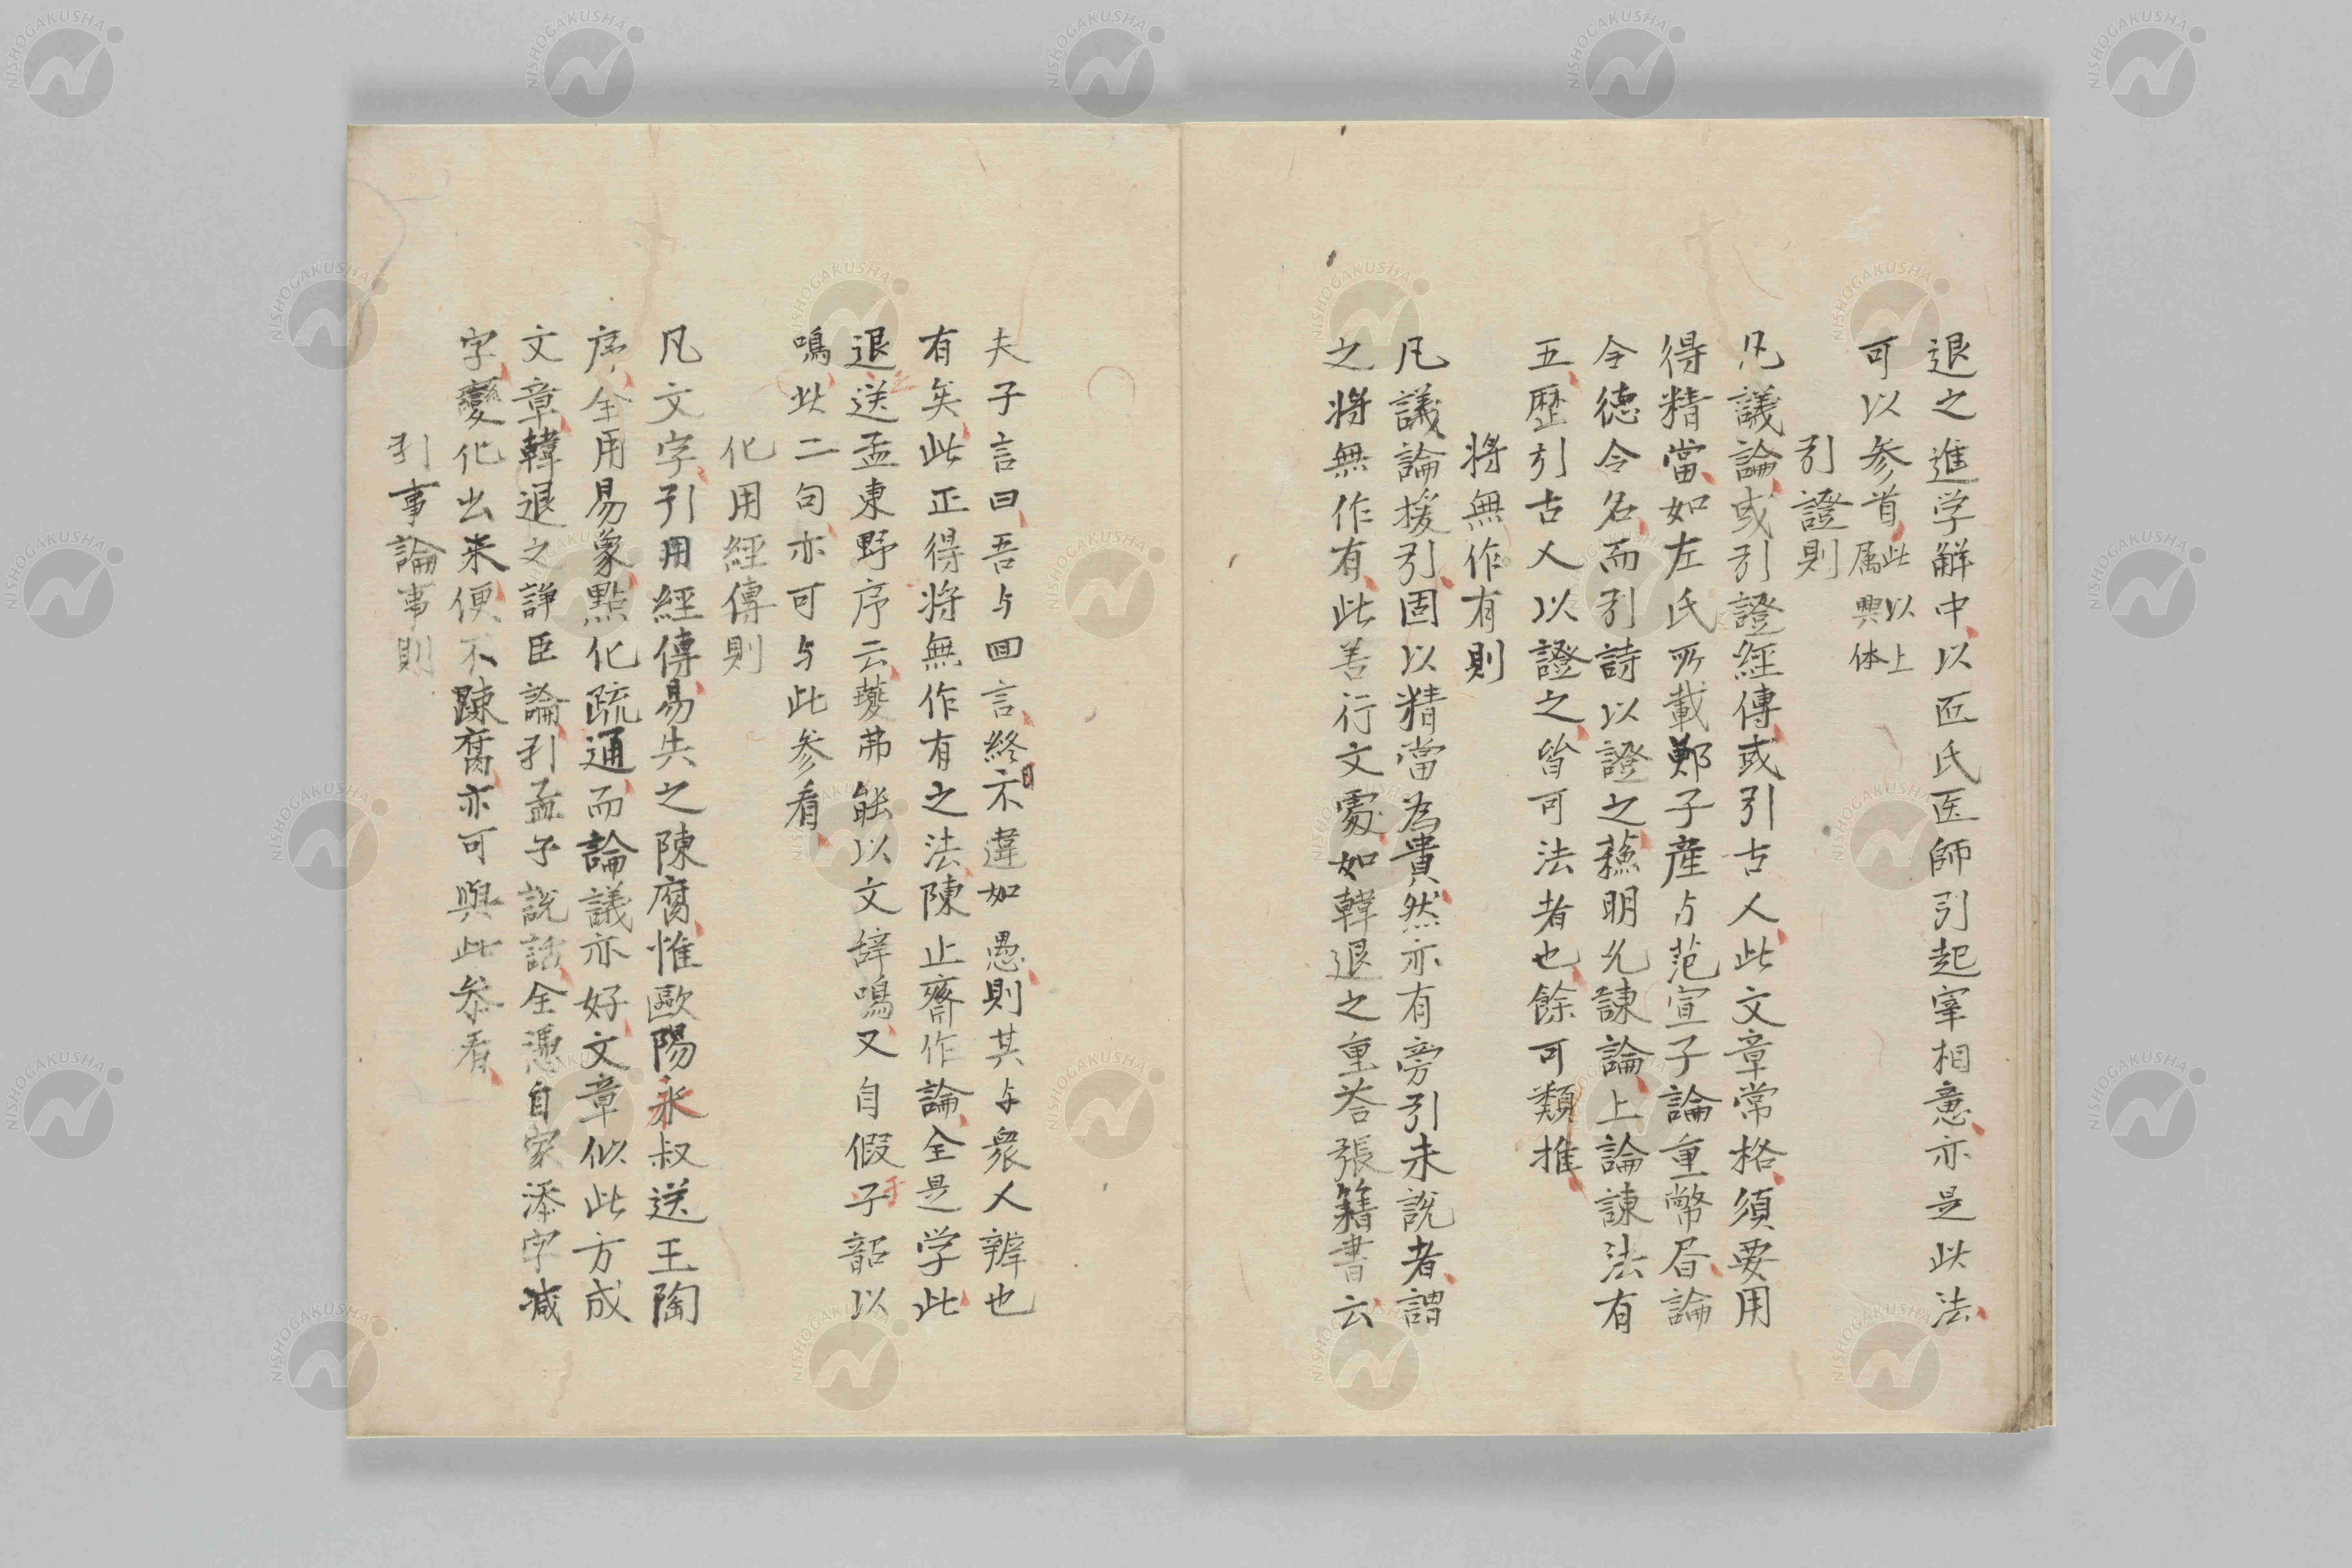 退之進学解中以匠氏医師引起宰相意亦是此法
可以参首此以上属興体
引證則
凡議論或引證經傳或引古人此文章常格須要用
得精當如左氏所載鄭子産与范宣子論重幣眉論
令德令名而引詩以證之蘓明允諌論上論諌法有
五歴引古人以證之皆可法者也餘可類推
將無作有則
凡議論援引固以精當為貴然亦有旁引未說者謂
之將無作有此善行文處如韓退之重荅張籍書云
夫子言曰吾与回言終日不違如愚則其与衆人辨也
有矣此正得将無作有之法陳止齋作論全是学此
退之送孟東野序云夔弗能以文辞鳴又自假于韶以
鳴此二句亦可与此参看
化用經傳則
凡文字引用經傳易失之陳腐惟歐陽永叔送王陶
序全用易象點化疏通而論議亦好文章似此方成
文章韓退之諍臣論引孟子說話全憑自家添字减
字變化出来便不陳腐亦可與此參看
引事論事則
NISHOGAKUSHA